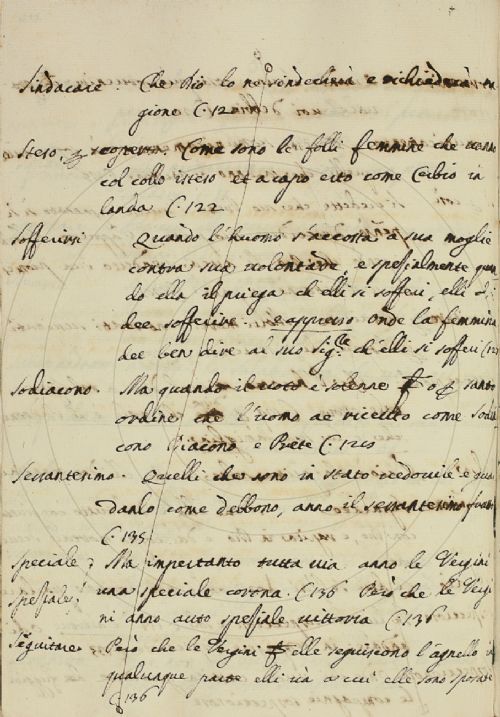 Sindacare. Che Dio lo ne sindecherà e richiederà ra
gione C. 120
Steso, Come sono le folli femmine che vanno
col collo isteso et a capo erto come Cerbio in
landa C. 122
Sofferirsi Quando l'huomo s'accosta a sua moglie
contra sua volontade, e spezialmente quan
do ella il priega ch'elli si sofferi, elli si
dee sofferire e appresso onde la femmina
dee ben dire al suo Sig.re ch'elli si sofferi C. 12
Sodiacono. Ma quando il voto è solenne o santo
ordine che l'uomo ae ricevuto come Sodia
cono Diacono e Prete C. 120
Sessantesimo. Quelli che sono in stato vedovile e guar
danlo come debbono, anno il sessantesimo frutto
C. 135
Speziale; Ma impertanto tutta via anno le Vergini
Speziale! una speciale corona. C. 136 Però che le Vergi
ni anno auto speziale vittoria C. 136
Seguitare Però che le Vergini elle seguiscono l'agnello in
qualunque parte elli và a cui elle sono sposate
C. 136